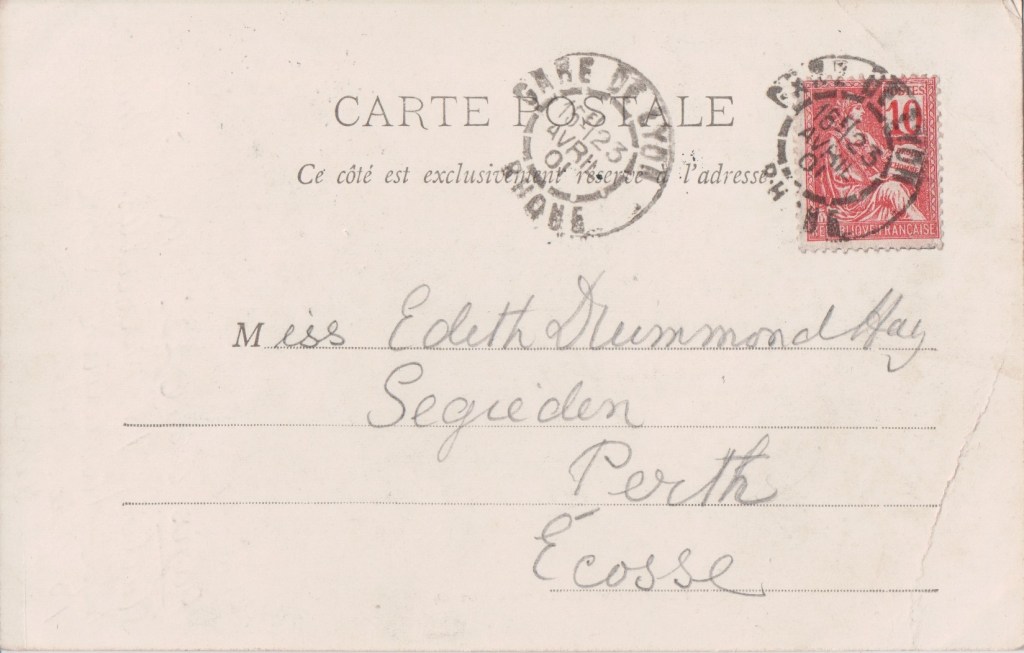 CARTE POSTALE
Ce côté est exclusivement réservé à l'adresse.
GARE DE LYON
16E 23
AVRIL
01
RHONE
GARE DE LYON
16E 23
AVRIL
01
RHONE
POSTES
10
REPUBLIQUE FRANÇAISE
Miss Edith Drummond Hay
Segieden
Perth
Écosse